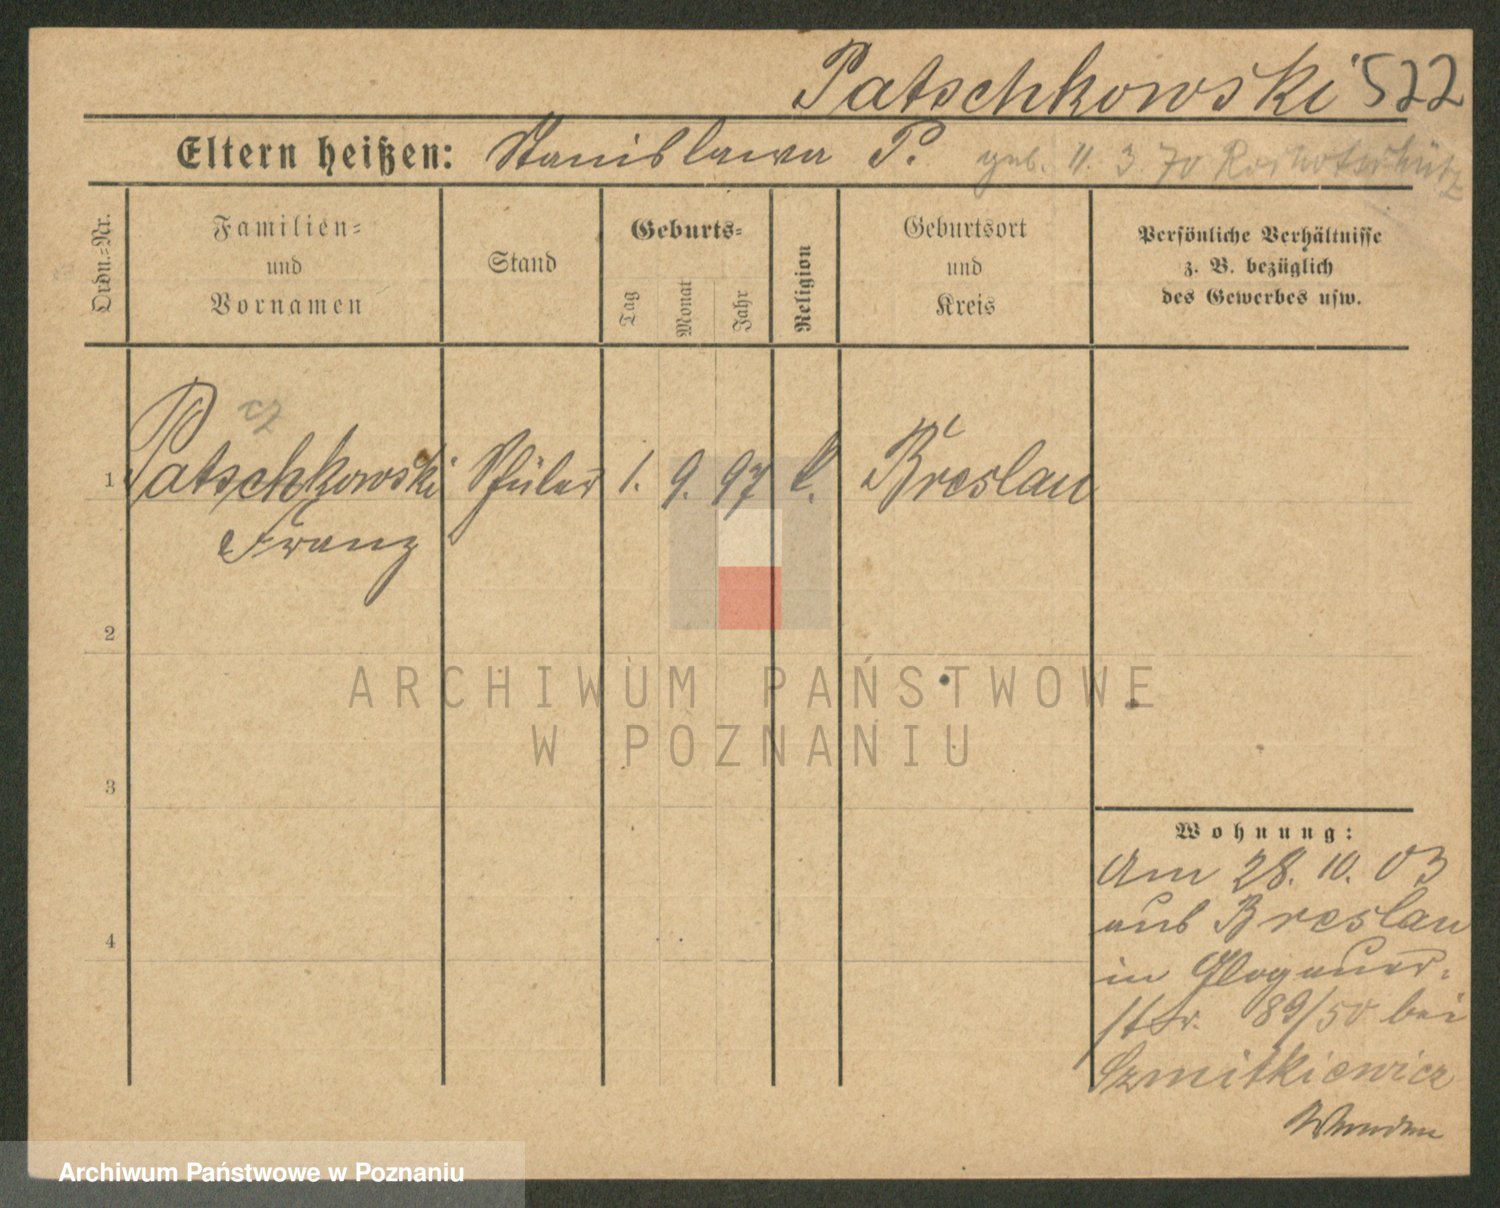 Patschkowski 522
Eltern heißen: Stanislawa P. geb. 11. 3. 70
Ordn.=Nr.
Familien=
und
Vornamen
Stand
Geburts=
Tag
Monat
Jahr
Religion
Geburtsort
und
Kreis
Persönliche Verhältnisse
z. B. bezüglich
des Gewerbes usw.
cz
1 Patschkowski Schüler 1. 9. 97 k. Breslau
Franz
2
3
4
ARCHIWUM PAŃSTWOWE
W POZNANIU
Wohnung:
Am 28. 10. 03
aus Breslau
in Glogauer-
str. 89/50 bei
Szmitkiewicz
Archiwum Państwowe w Poznaniu